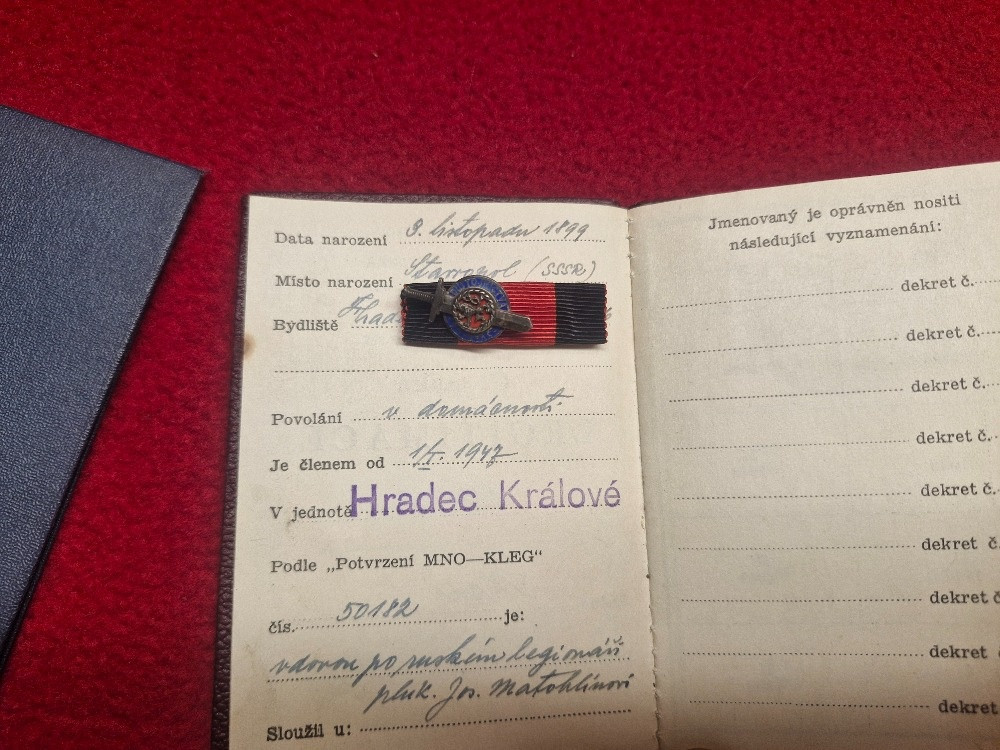 Data narození 9. listopadu 1899
Místo narození Stavropol (SSSR)
Bydliště
Povolání v domácnosti
Je členem od 1947
V jednotě Hradec Králové
Podle „Potvrzení MNO—KLEG“
čís. 50182 je:
vdovou po ruském legionáři
pluk. Jos.
Sloužil u:
Jmenovaný je oprávněn nositi
následující vyznamenání:
dekret č.
dekret č.
dekret č.
dekret č.
dekret č.
dekret č.
dekret č
dekret
dekret